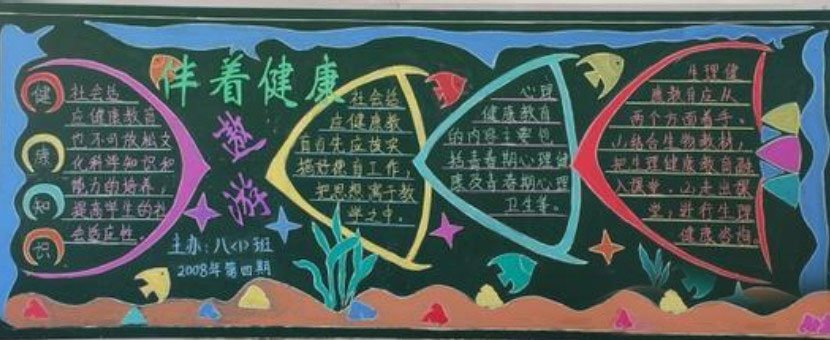 伴着健康
遨游
健
康
知
识
社会适
应健康教育
也不可放松文
化科学知识和
能力的培养,
提高学生的社
会适应性。
主办:八<1>班
2008年第四期
社会适
应健康教
育首先应该实
搞好德育工作,
把思想寓于教
学之中。
心理
健康教育
的内容主要包
括青春期心理健
康及青春期心理
卫生等。
生理健
康教育应从
两个方面着手。
(1)结合生物教材,
把生理健康教育融
入课堂。(2)走出课
堂,进行生理
健康咨询。